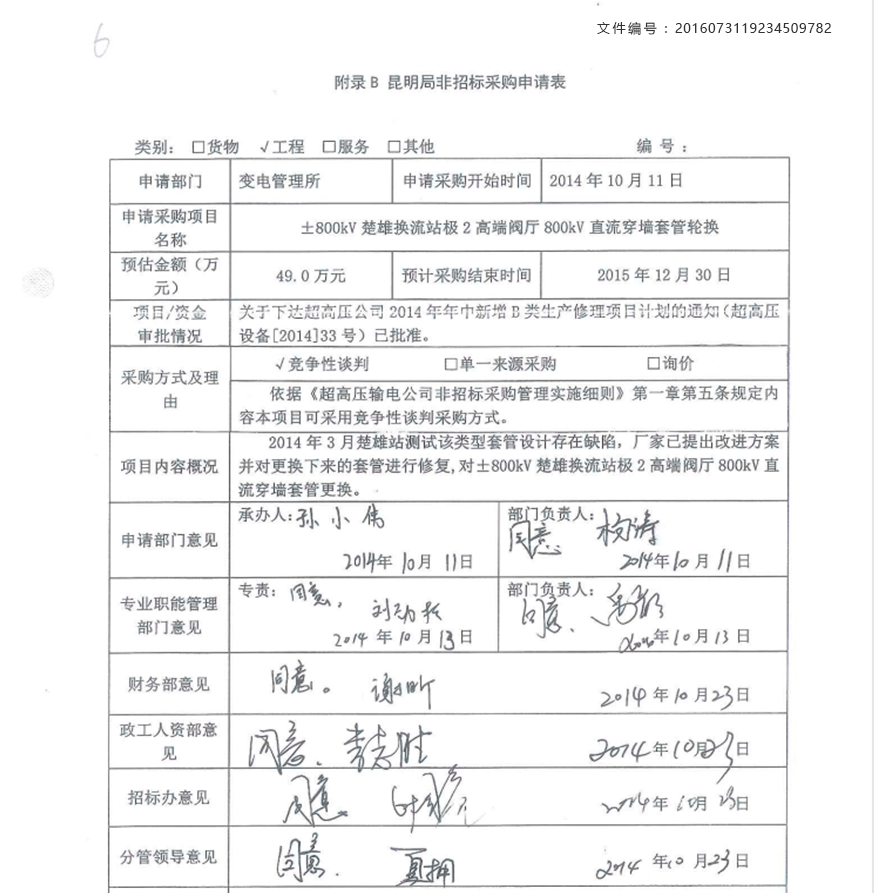 6
文件编号：2016073119234509782
附录 B 昆明局非招标采购申请表
类别： □货物 √工程 □服务 □其他 编 号：
申请部门 变电管理所 申请采购开始时间 2014 年 10 月 11 日
申请采购项目
名称
±800kV 楚雄换流站极 2 高端阀厅 800kV 直流穿墙套管轮换
预估金额（万
元）
49.0 万元 预计采购结束时间 2015 年 12 月 30 日
项目/资金
审批情况
关于下达超高压公司 2014 年年中新增 B 类生产修理项目计划的通知（超高压
设备[2014]33 号）已批准。
采购方式及理
由
√竞争性谈判 □单一来源采购 □询价
依据《超高压输电公司非招标采购管理实施细则》第一章第五条规定内
容本项目可采用竞争性谈判采购方式。
项目内容概况
2014 年 3 月楚雄站测试该类型套管设计存在缺陷，厂家已提出改进方案
并对更换下来的套管进行修复,对±800kV 楚雄换流站极 2 高端阀厅 800kV 直
流穿墙套管更换。
申请部门意见
承办人：孙小伟
2014年 10月 11日
部门负责人：
同意
2014年10月11日
专业职能管理
部门意见
专责：同意，
2014 年 10 月 13日
部门负责人：
同意、
年10月13日
财务部意见 同意。 谢昕 2014年10月23日
政工人资部意
见
同意． 李志胜 2014年10月23日
招标办意见 同意 2014年10月23日
分管领导意见 同意． 夏拥 2014 年10月23日